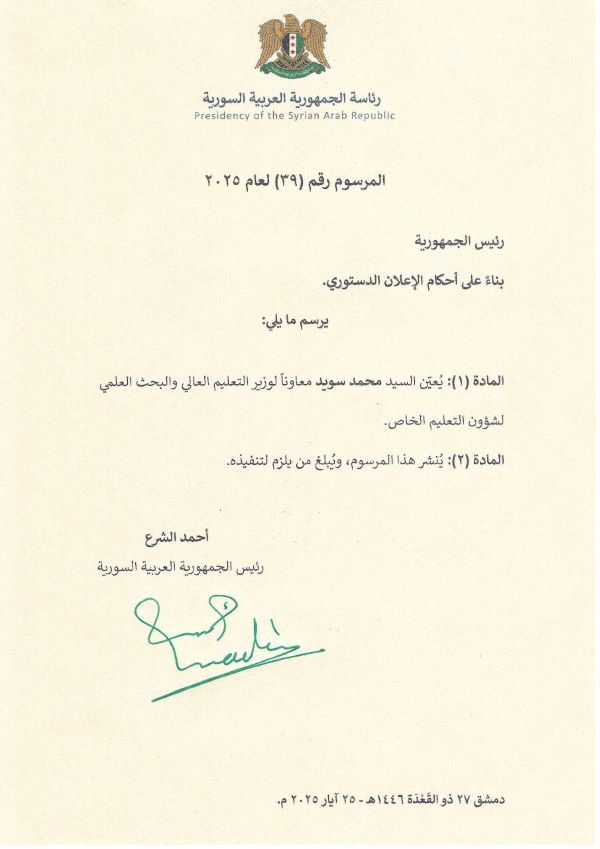 رئاسة الجمهورية العربية السورية
Presidency of the Syrian Arab Republic
المرسوم رقم (٣٩) لعام ٢٠٢٥
رئيس الجمهورية
بناءً على أحكام الإعلان الدستوري.
يرسم ما يلي:
المادة (١): يُعيّن السيد محمد سويد معاوناً لوزير التعليم العالي والبحث العلمي
لشؤون التعليم الخاص.
المادة (٢): يُنشر هذا المرسوم، ويُبلغ من يلزم لتنفيذه.
أحمد الشرع
رئيس الجمهورية العربية السورية
دمشق ٢٧ ذو القَعْدَة ١٤٤٦هـ - ٢٥ أيار ٢٠٢٥ م.